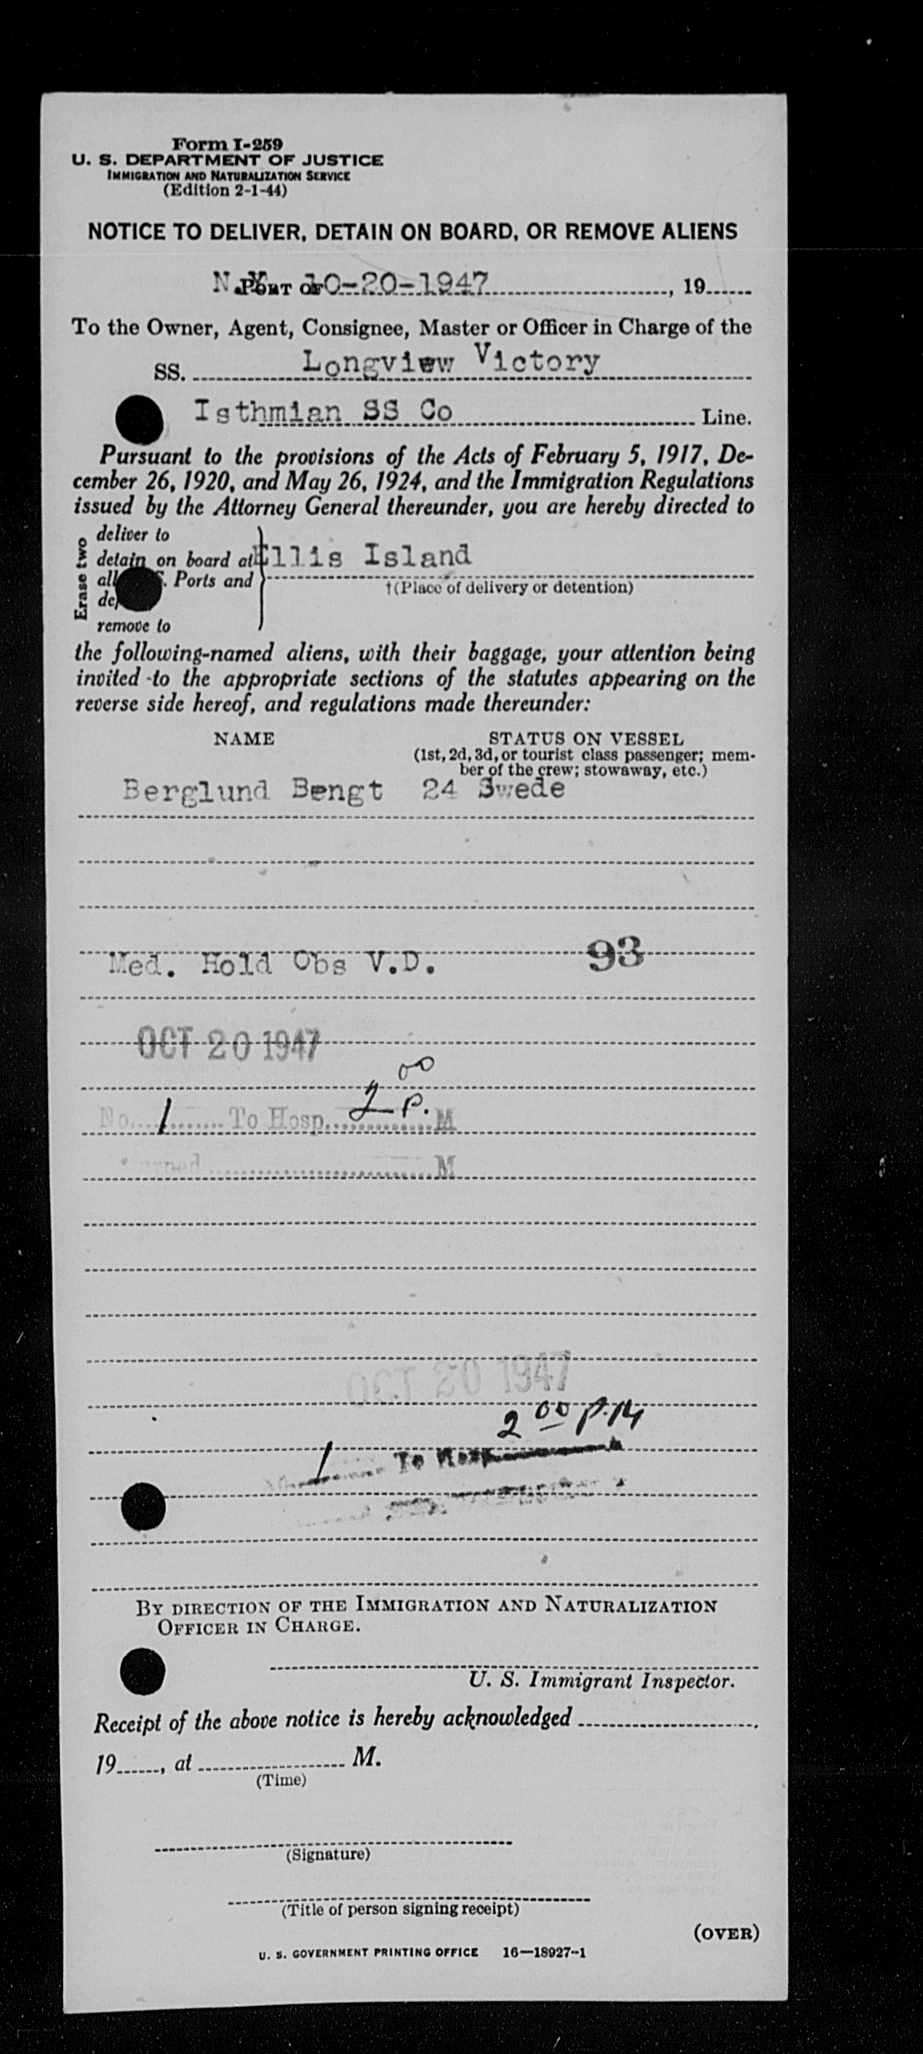 Form I-259
U. S. DEPARTMENT OF JUSTICE
IMMIGRATION AND NATURALIZATION SERVICE
(Edition 2-1-44)
NOTICE TO DELIVER, DETAIN ON BOARD, OR REMOVE ALIENS
N.Y. PORT OF 10-20-1947, 19
To the Owner, Agent, Consignee, Master or Officer in Charge of the
SS. Longview Victory
Isthmian SS Co Line.
Pursuant to the provisions of the Acts of February 5, 1917, De-
cember 26, 1920, and May 26, 1924, and the Immigration Regulations
issued by the Attorney General thereunder, you are hereby directed to
Erase two
deliver to
detain on board at Ellis Island
all S. Ports and
†(Place of delivery or detention)
remove to
the following-named aliens, with their baggage, your attention being
invited to the appropriate sections of the statutes appearing on the
reverse side hereof, and regulations made thereunder:
NAME STATUS ON VESSEL
(1st, 2d, 3d, or tourist class passenger; mem-
ber of the crew; stowaway, etc.)
Berglund Bengt 24 Swede
Med. Hold Obs V.D. 93
OCT 20 1947
No. 1 To Hosp. 2 00 P. M
M
OCT 20 1947
2 00 P.M
1 To Hosp
BY DIRECTION OF THE IMMIGRATION AND NATURALIZATION
OFFICER IN CHARGE.
U. S. Immigrant Inspector.
Receipt of the above notice is hereby acknowledged
19, at M.
(Time)
(Signature)
(Title of person signing receipt)
(OVER)
U. S. GOVERNMENT PRINTING OFFICE 16—18927-1